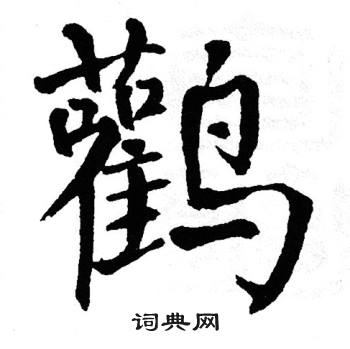 鹳
词典网